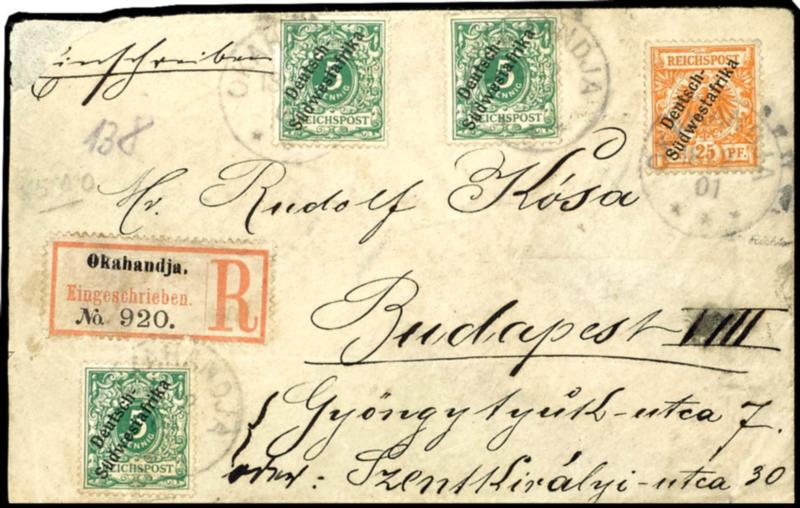 Einschreiben
5 PFENNIG
REICHSPOST
Deutsch-
Südwestafrika
5 PFENNIG
REICHSPOST
Deutsch-
Südwestafrika
REICHSPOST
25 PF.
Deutsch-
Südwestafrika
OKAHANDJA
01
138
Hr. Rudolf Kósa
Okahandja.
Eingeschrieben.
No. 920.
R
Budapest VIII
Gyöngytyúk-utca 7.
oder: Szentkirályi-utca 30
5 PFENNIG
REICHSPOST
Deutsch-
Südwestafrika
OKAHANDJA